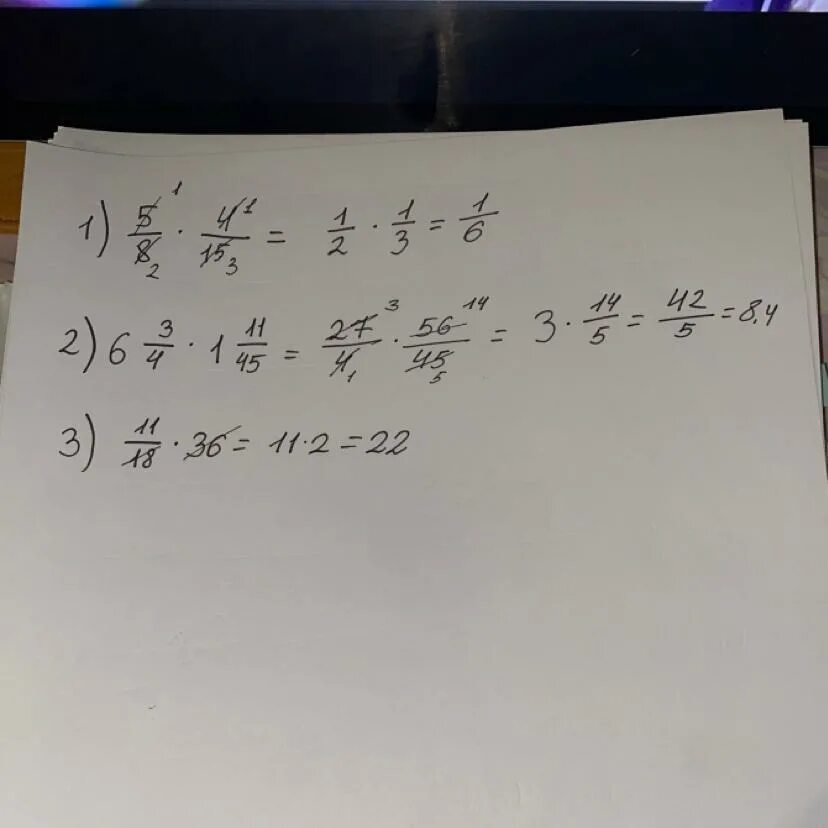 1) 5/8 · 4/15 = 1/2 · 1/3 = 1/6
2) 6 3/4 · 1 11/45 = 27/4 · 56/45 = 3 · 14/5 = 42/5 = 8,4
3) 11/18 · 36 = 11 · 2 = 22